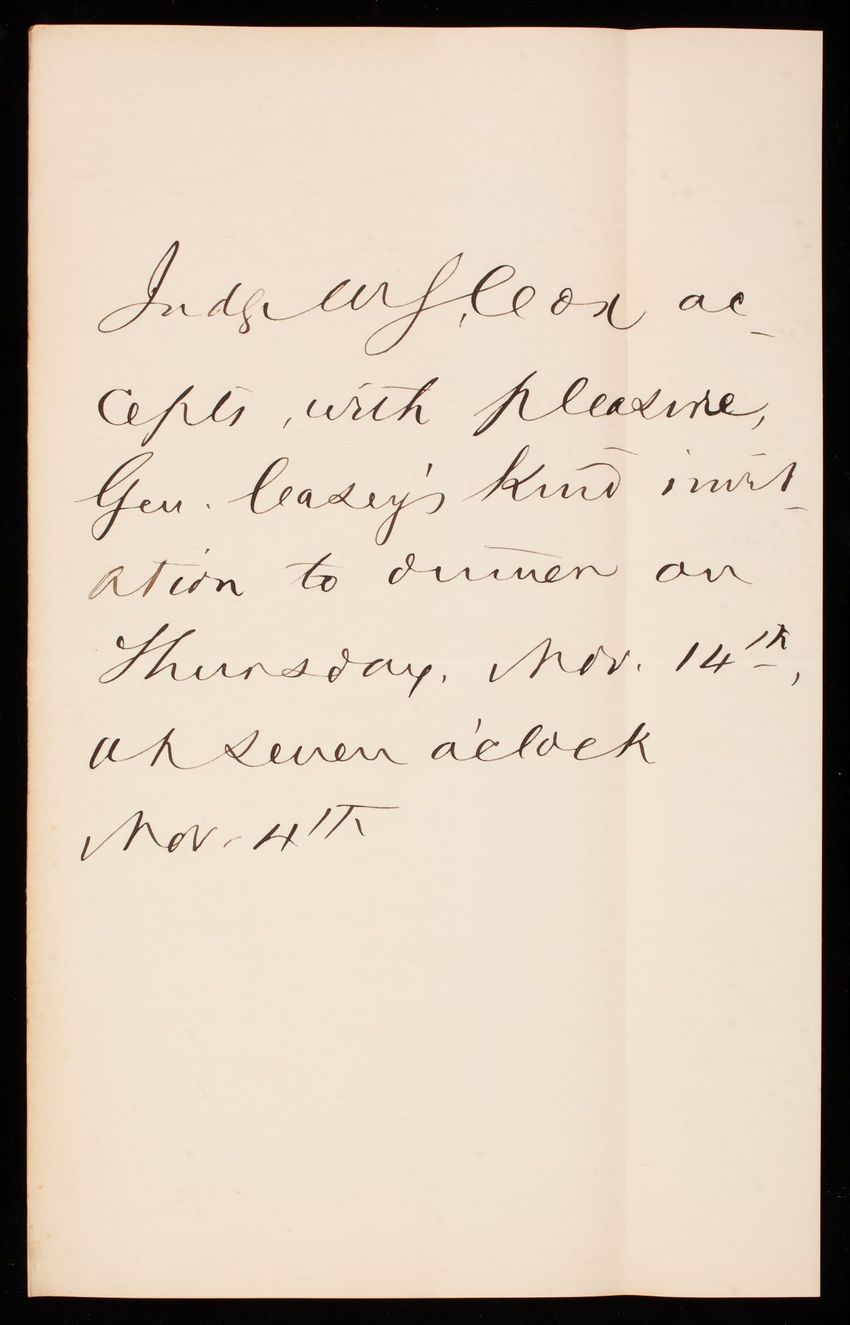 Judge W S. Cox ac-
cepts, with pleasure,
Gen. Casey's kind invit-
ation to dinner on
Thursday, Nov. 14th,
at seven o'clock
Nov. 4th